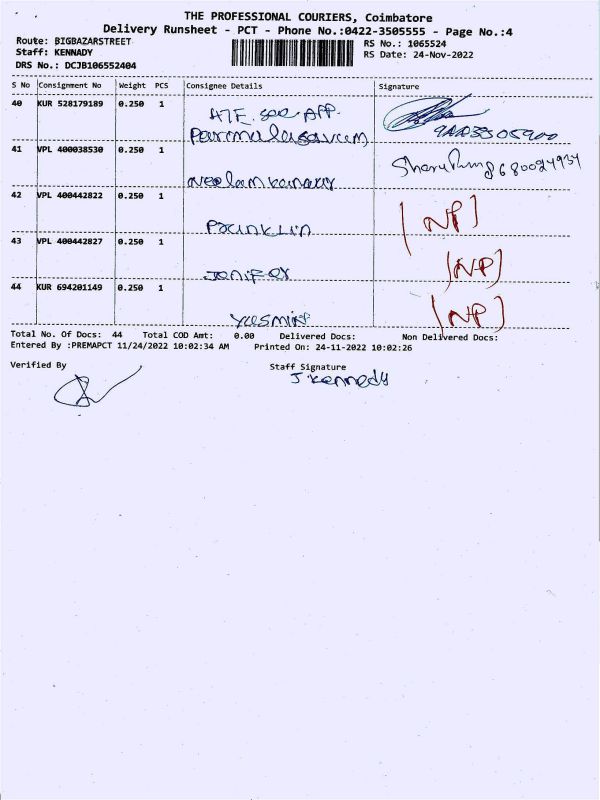 THE PROFESSIONAL COURIERS, Coimbatore
Delivery Runsheet - PCT - Phone No.:0422-3505555 - Page No.:4
Route: BIGBAZARSTREET
Staff: KENNADY
DRS No.: DCJB106552404
RS No.: 1065524
RS Date: 24-Nov-2022
S No Consignment No Weight PCS Consignee Details Signature
40 KUR 528179189 0.250 1
41 VPL 400038530 0.250 1
42 VPL 400442822 0.250 1 [NP]
43 VPL 400442827 0.250 1 [NP]
44 KUR 694201149 0.250 1 [NP]
Total No. Of Docs: 44 Total COD Amt: 0.00 Delivered Docs: Non Delivered Docs:
Entered By :PREMAPCT 11/24/2022 10:02:34 AM Printed On: 24-11-2022 10:02:26
Verified By
Staff Signature
J Kennedy